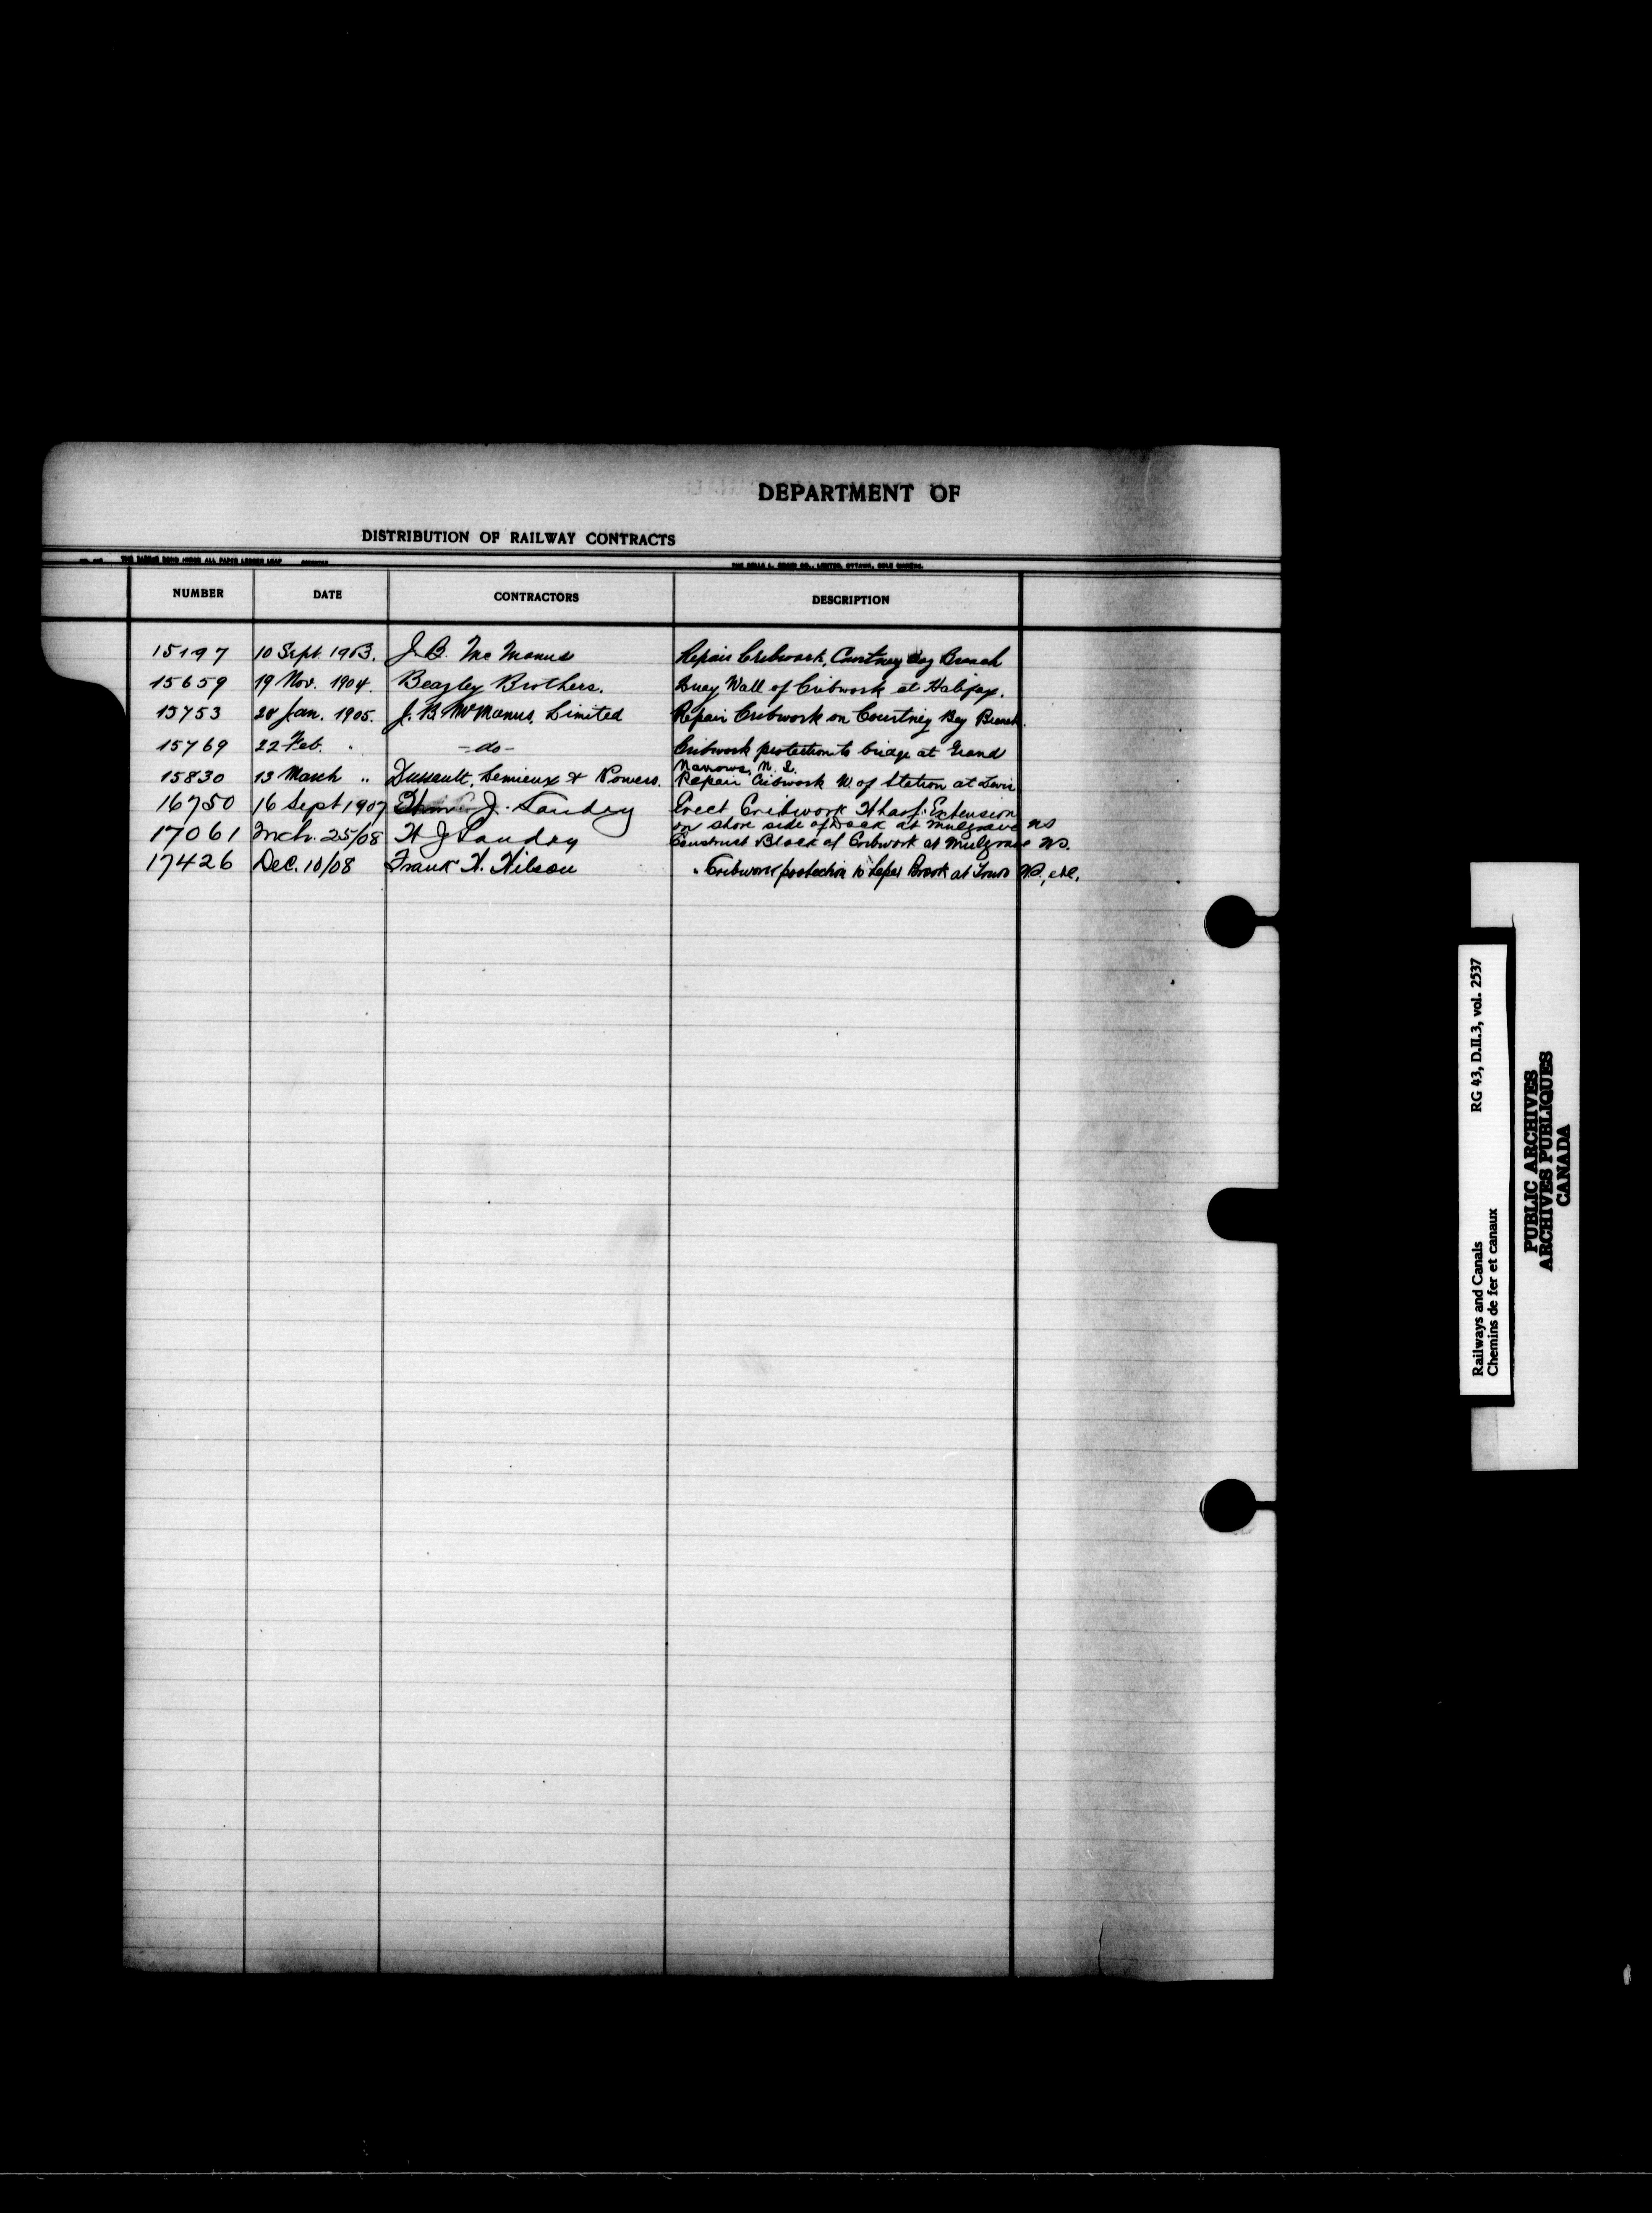 DEPARTMENT OF
DISTRIBUTION OF RAILWAY CONTRACTS
NUMBER DATE CONTRACTORS DESCRIPTION
15197 10 Sept. 1903. J. B. McManus Repair Cribwork, Courtney Bay Branch
15659 19 Nov. 1904. Beazley Brothers. Quay Wall of Cribwork at Halifax.
15753 28 Jan. 1905. J. B. McManus Limited Repair Cribwork on Courtney Bay Branch.
15769 22 Feb. " -do- Cribwork protection to bridge at Grand
Narrows, N. S.
15830 13 March " Dussault, Lemieux & Powers. Repair Cribwork W. of Station at Levis
16750 16 Sept 1907 J. Landry Erect Cribwork Wharf Extension
on shore side of Dock at Mulgrave NS
17061 Mch. 25/08 H J Landry Construct Block of Cribwork at Mulgrave NS.
17426 Dec. 10/08 Frank H. Wilson " Cribwork protection to Lepes Brook at Truro N.S., etc.
Railways and Canals RG 43, D.II.3, vol. 2537
Chemins de fer et canaux
PUBLIC ARCHIVES
ARCHIVES PUBLIQUES
CANADA